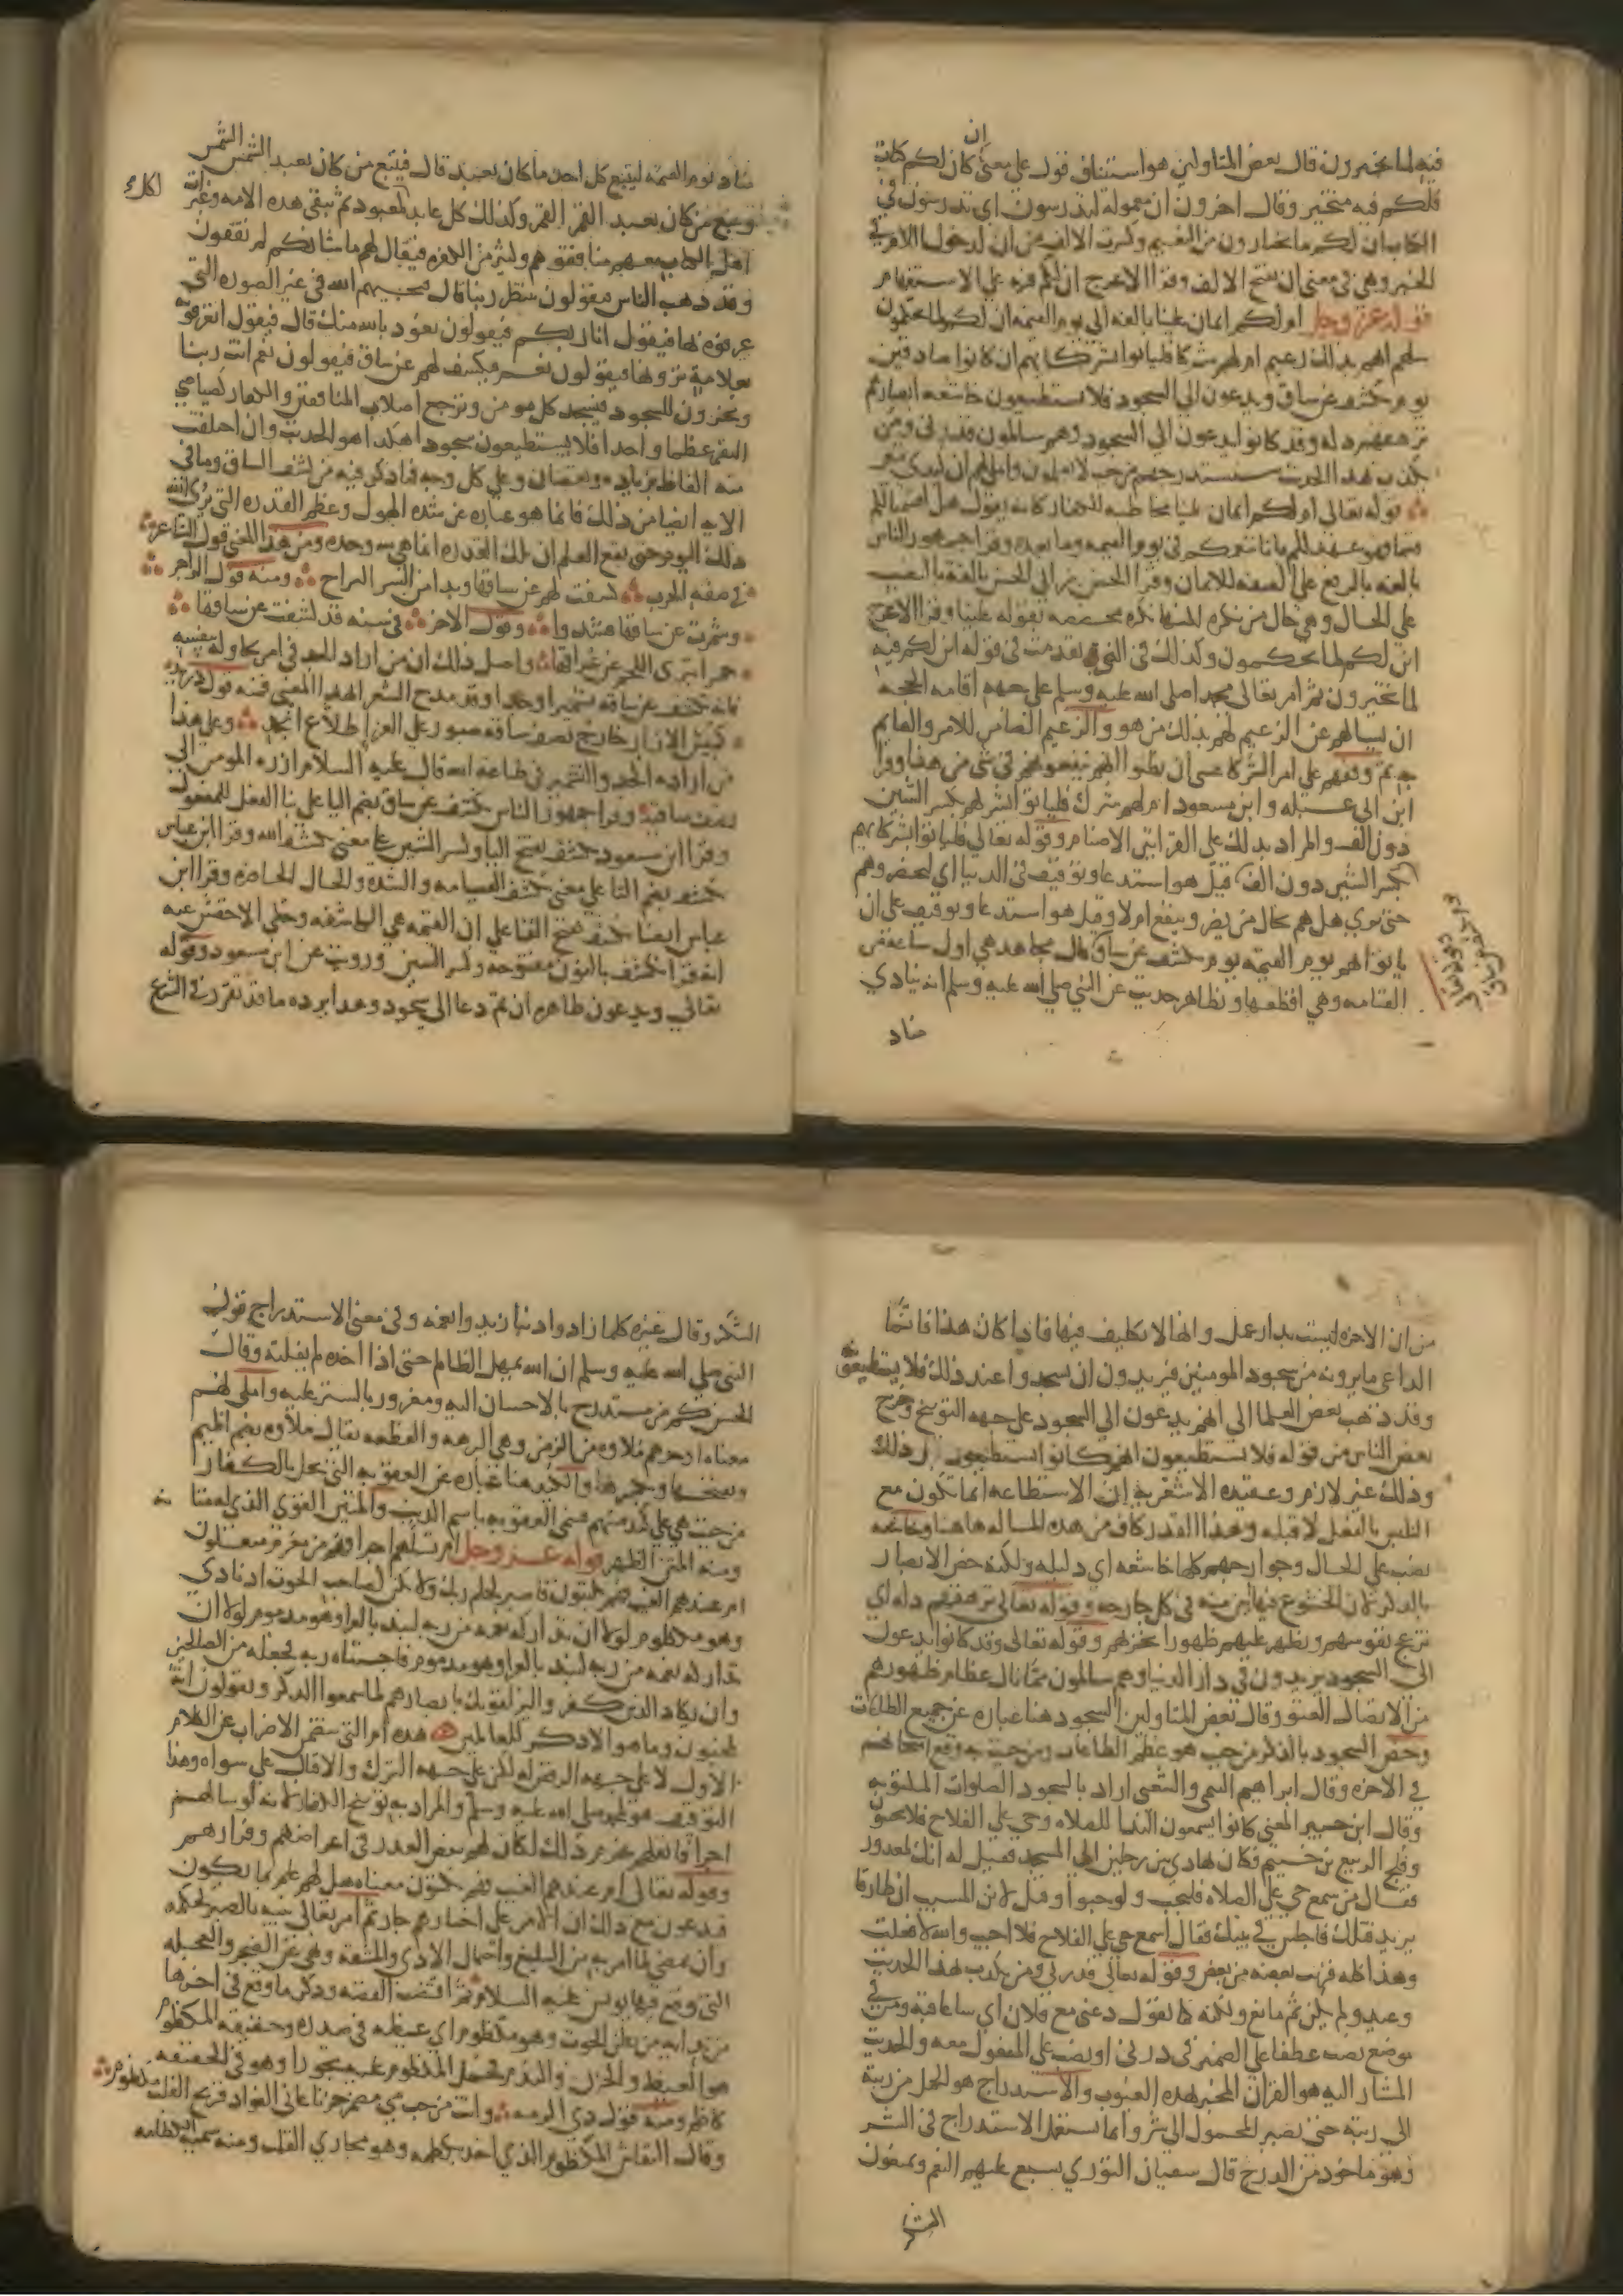 فيه لما تخيرون قال بعض المتاولين هو استئناف قول على معنى ان كان لكم كتاب
فلكم فيه متخير وقال اخرون ان معمولة لتدرسون اي تدرسون في
الكتاب ان لكم ما تختارون من النعيم وكسرت الالف من ان لدخول اللام في
الخبر وهي في معنى ان بفتح الالف وقرا الاعرج ان لكم فيه على الاستفهام
قوله عز وجل ام لكم ايمان علينا بالغه الى يوم القيمه ان لكم لما تحكمون
سلهم ايهم بذلك زعيم ام لهم شركا فليانوا بشركايهم ان كانوا صادقين
يوم يكشف عن ساق ويدعون الى السجود فلا يستطيعون خاشعه ابصارهم
ترهقهم ذله وقد كانوا يدعون الى السجود وهم سالمون فذرني ومن
يكذب بهذا الحديث سنستدرجهم من حيث لا يعلمون واملي لهم ان كيدي متين
قوله تعالى ام لكم ايمان علينا مخاطبه للكفار كانه يقول هل اقسمنا لكم
قسما فهو عهد لكم بانا ننعمكم في يوم القيمه وما بعده وقرا جمهور الناس
بالغه بالرفع على الصفه للايمان وقرا الحسن بن ابي الحسن بالغة بالنصب
على الحال وهي حال من نكره لانها نكره مخصصه بقوله علينا وقرا الاعرج
ان لكم لما تحكمون وكذلك في التي تقدمت في قوله ان لكم فيه
لما تخيرون ثم امر تعالى محمدا صلى الله عليه وسلم على جهه اقامه الحجه
ان يسالهم عن الزعيم لهم بذلك من هو والزعيم الضامن للامر والقايم
به ثم وقفهم على امر الشركا عسى ان يظنوا انهم ينفعونهم في شي من هذا وقرا
ابن ابي عبله وابن مسعود ام لهم شرك فليانوا بشركهم بكسر الشين
دون الف والمراد بذلك على القراتين الاصنام وقوله تعالى فليانوا بشركايهم
بكسر الشين دون الف قيل هو استدعا وتوقيف في الدنيا اي ليحضروهم
حتى نرى هل هم بحال من يضر وينفع ام لا وقيل هو استدعا وتوقيف على ان
يانوا بهم يوم القيمه يوم يكشف عن ساق قال مجاهد هي اول ساعه من
القيامه وهي افظعها وتظاهر حديث عن النبي صلى الله عليه وسلم انه ينادي
مناد
مناد يوم القيمه ليتبع كل احد ما كان يعبد قال فيتبع من كان يعبد الشمس الشمس
ويتبع من كان يعبد القمر القمر وكذلك كل عابد لمعبود ثم تبقى هذه الامه وغبرات
اهل الكتاب معهم منافقوهم وكثير من الكفره فيقال لهم ما شانكم لم تقفون
وقد ذهب الناس فيقولون ننتظر ربنا قال فيجيهم الله في غير الصوره التي
عرفوه بها فيقول انا ربكم فيقولون نعوذ بالله منك قال فيقول اتعرفونه
بعلامة ترونها فيقولون نعم فيكشف لهم عن ساق فيقولون نعم انت ربنا
ويخرون للسجود فيسجد كل مومن وترجع اصلاب المنافقين والكفار كصياصي
البقر عظما واحدا فلا يستطيعون سجودا هكذا هو الحديث وان اختلفت
منه الفاظ بزياده ونقصان وعلى كل وجه فما ذكر فيه من كشف الساق وما في
الايه ايضا من ذلك فانما هو عباره عن شده الهول وعظم القدره التي يرى الله
ذلك اليوم حتى يقع العلم ان تلك القدره انما هي لله وحده ومن هذا المعنى قول الشاعر
في صفه الحرب كشفت لهم عن ساقها وبدا من الشر البراح ومنه قول الراجز
وشمرت عن ساقها فشدوا وقول الاخر في سنه قد كشفت عن ساقها
حمرا تبري اللحم عن عراقها واصل ذلك ان من اراد الجد في امر يحاوله بنفسه
فانه يكشف عن ساقه تشميرا وجدا وقد مدح الشعر الهذا المعنى فمنه قول دريد
كميش الازار خارج نصف ساقه صبور على العزا طلاع انجد وعلى هذا
من اراده الجد والتشمير في طاعه الله قال عليه السلام ازره المومن الى
نصف ساقيه وقرا جمهور الناس يكشف عن ساق بضم اليا على بنا الفعل للمفعول
وقرا ابن مسعود يكشف بفتح اليا وكسر الشين على معنى يكشف الله وقرا ابن عباس
تكشف بضم التا على معنى تكشف القيامه والشده والحال الحاضره وقرا ابن
عباس ايضا تكشف بفتح التا على ان القيمه هي الكاشفه وحكى الاخفش عنه
انه قرا نكشف بالنون مفتوحه وكسر الشين ورويت عن ابن مسعود وقوله
تعالى ويدعون ظاهره ان ثم دعا الى سجود وهذا يرده ما قد تقرر في الشرع
من ان الاخره ليست بدار عمل وانها لا تكليف فيها فاذا كان هذا فانما
الداعي ما يرونه من سجود المومنين فيريدون ان يسجدوا عند ذلك فلا يستطيعون
وقد ذهب بعض العلما الى انهم يدعون الى السجود على جهه التوبيخ وخرج
بعض الناس من قوله فلا يستطيعون انهم كانوا يستطيعون قبل ذلك
وذلك غير لازم وعقيده الاشعريه ان الاستطاعه انما تكون مع
التلبس بالفعل لا قبله وهذا القدر كاف من هذه المساله هاهنا وخاشعه
نصب على الحال وجوارحهم كلها خاشعه اي ذليله ولكنه خص الابصار
بالذكر لان الخشوع فيها ابين منه في كل جارحه وقوله تعالى ترهقهم ذله اي
تزعج نفوسهم وتظهر عليهم ظهورا يخزيهم وقوله تعالى وقد كانوا يدعون
الى السجود يريدون في دار الدنيا وهم سالمون مما نال عظام ظهورهم
من الاتصال والعتو وقال بعض المتاولين السجود هنا عباره عن جميع الطاعات
وخص السجود بالذكر من حيث هو عظم الطاعات ومن حيث به وقع امتحانهم
في الاخره وقال ابراهيم التيمي والشعبي اراد بالسجود الصلوات المكتوبه
وقال ابن جبير المعنى كانوا يسمعون الندا للصلاه وحي على الفلاح فلا يجيبون
وفلج الربيع بن خثيم فكان يهادى بين رجلين الى المسجد فقيل له انك لمعذور
فقال من سمع حي على الصلاه فليجب ولو حبوا وقيل لابن المسيب ان طارقا
يريد قتلك فاجلس في بيتك فقال اسمع حي على الفلاح فلا اجيب والله لا فعلت
وهذا كله قريب بعضه من بعض وقوله تعالى فذرني ومن يكذب بهذا الحديث
وعيد ولم يكن ثم مانع ولكنه كما تقول دعني مع فلان اي ساعاقبه ومن في
موضع نصب عطفا على الضمير في ذرني او نصب على المفعول معه والحديث
المشار اليه هو القران المخبر بهذه الغيوب والاستدراج هو الحمل من رتبة
الى رتبة حتى يصير المحمول الى شر وانما يستعمل الاستدراج في الشر
وهو ماخوذ من الدرج قال سفيان الثوري نسبغ عليهم النعم ويمنعون
الشكر
الشكر وقال غيره كلما زادوا ذنبا زيدوا نعمه وفي معنى الاستدراج قول
النبي صلى الله عليه وسلم ان الله يمهل الظالم حتى اذا اخذه لم يفلته وقال
الحسن كم من مستدرج بالاحسان اليه ومغرور بالستر عليه واملي لهم
معناه اوخرهم ملاوه من الزمن وهي البرهه والقطعه يقال ملاوه بضم الميم
وبفتحها وبكسرها والكيد هنا عباره عن العقوبه التي تحل بالكفار
من حيث هي على كيد منهم فسمى العقوبه باسم الذنب والمتين القوي الذي له متانه
ومنه المتن الظهر قوله عز وجل ام تسالهم اجرا فهم من مغرم مثقلون
ام عندهم الغيب فهم يكتبون فاصبر لحكم ربك ولا تكن كصاحب الحوت اذ نادى
وهو مكظوم لولا ان تداركه نعمه من ربه لنبذ بالعرا وهو مذموم لولا ان
تداركه نعمه من ربه لنبذ بالعرا وهو مذموم فاجتباه ربه فجعله من الصالحين
وان يكاد الذين كفروا ليزلقونك بابصارهم لما سمعوا الذكر ويقولون انه
لمجنون وما هو الا ذكر للعالمين هذه ام التي تتضمن الاضراب عن الكلام
الاول لا على جهه الرفض له لكن على جهه الترك والاقبال على سواه وهذا
التوقيف هو لمحمد صلى الله عليه وسلم والمراد به توبيخ الكفار لانه لو سالهم
اجرا فاثقلهم غرم ذلك لكان لهم بعض العذر في اعراضهم وفرارهم
وقوله تعالى ام عندهم الغيب فهم يكتبون معناه هل لهم علم بما يكون
فيدعون مع ذلك ان الامر على اختيارهم جار ثم امر تعالى نبيه بالصبر لحكمه
وان يمضي لما امر به من التبليغ واحتمال الاذى والمشقه ونهي عن الضجر والعجله
التي وقع فيها يونس عليه السلام ثم اقتضب القصه وذكر ما وقع في اخرها
من ندايه من بطن الحوت وهو مكظوم اي غيظه في صدره وحقيقه المكظوم
هو الغيظ والحزن والندم فحمل المكظوم عليه تجوزا وهو في الحقيقه
كاظم ومنه قول ذي الرمه وانت من حب مي مضمر حزنا عاني الفواد قريح القلب مكظوم
وقال النقاش المكظوم الذي اخذ بكظمه وهو مجاري القلب ومنه سميت الكظامه